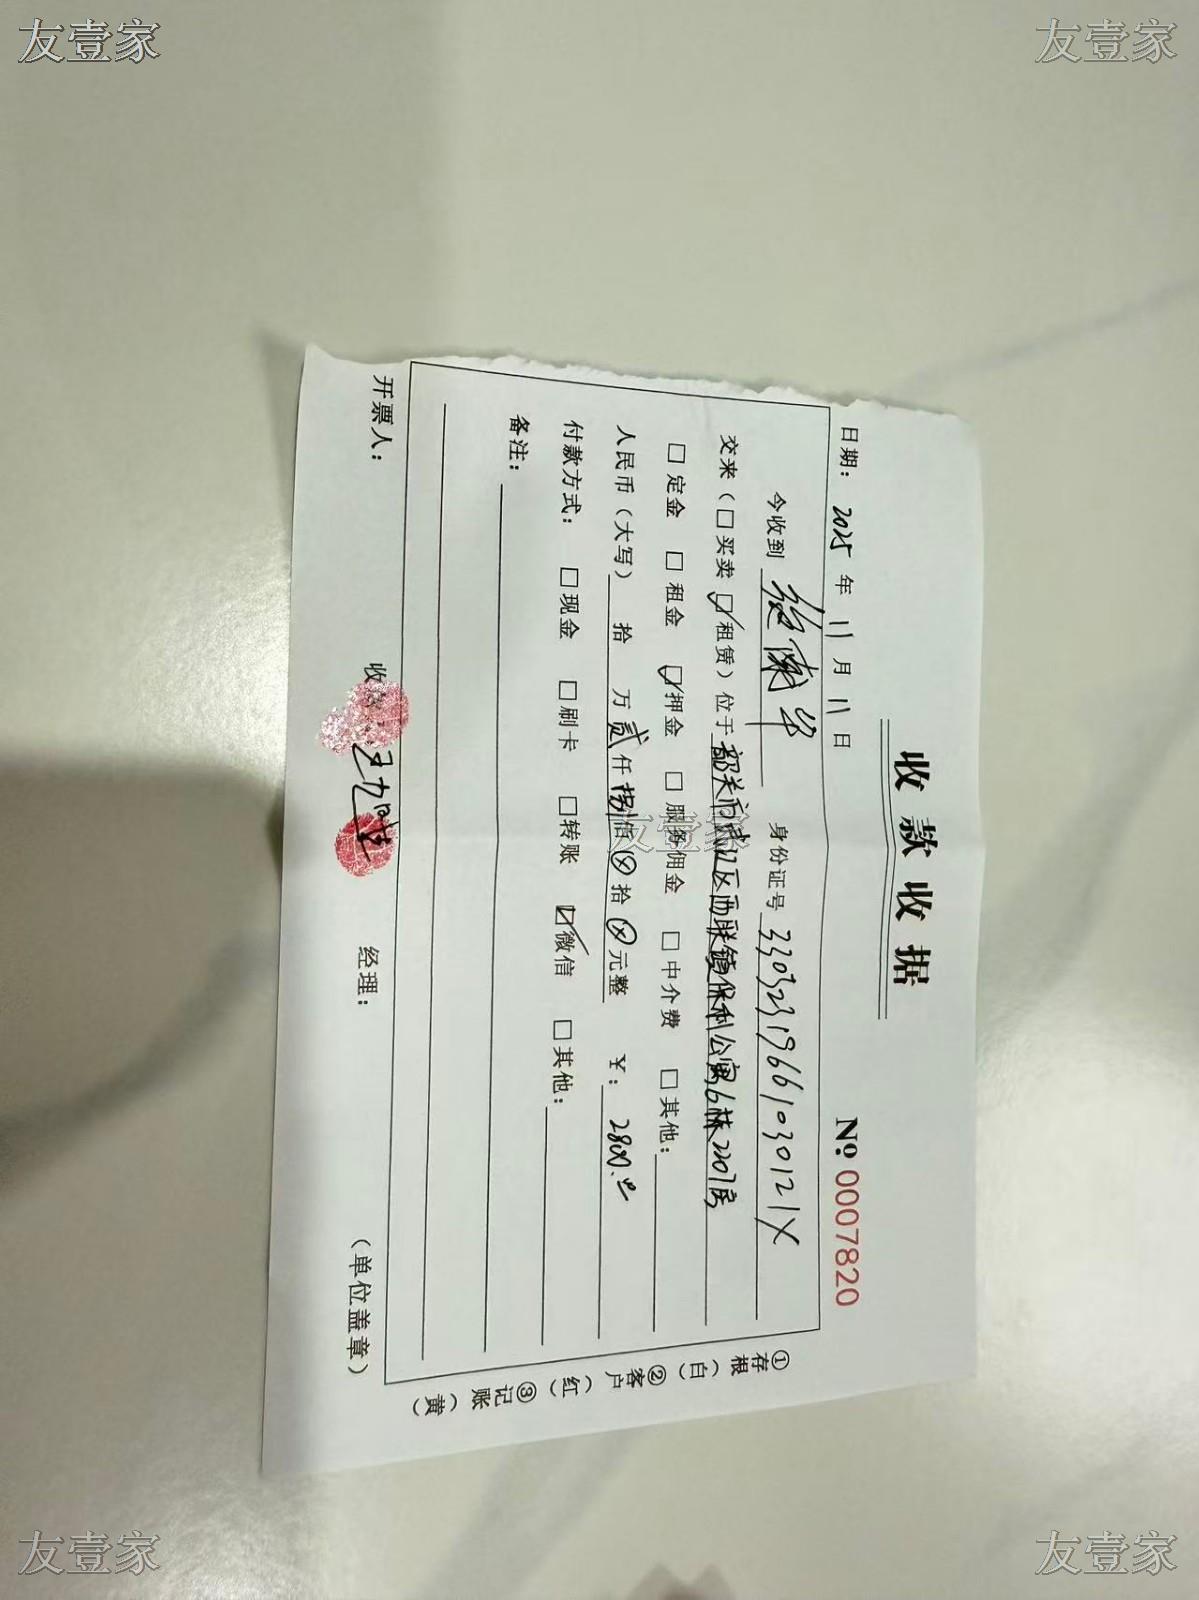 友壹家
友壹家
收款收据
№ 00007820
日期：2025年11月11日
今收到 身份证号 33032319661030121X
交来（□买卖 ☑租赁）位于 韶关市武江区西联镇保利公寓6栋2207房
□定金 □租金 ☑押金 □服务佣金 □中介费 □其他：
人民币（大写） 拾 万 贰仟捌佰⊗拾⊗元整 ￥：2800.00
付款方式： □现金 □刷卡 □转账 ☑微信 □其他：
备注：
开票人： 收款 经理： （单位盖章）
①存根（白）②客户（红）③记账（黄）
友壹家
友壹家
友壹家